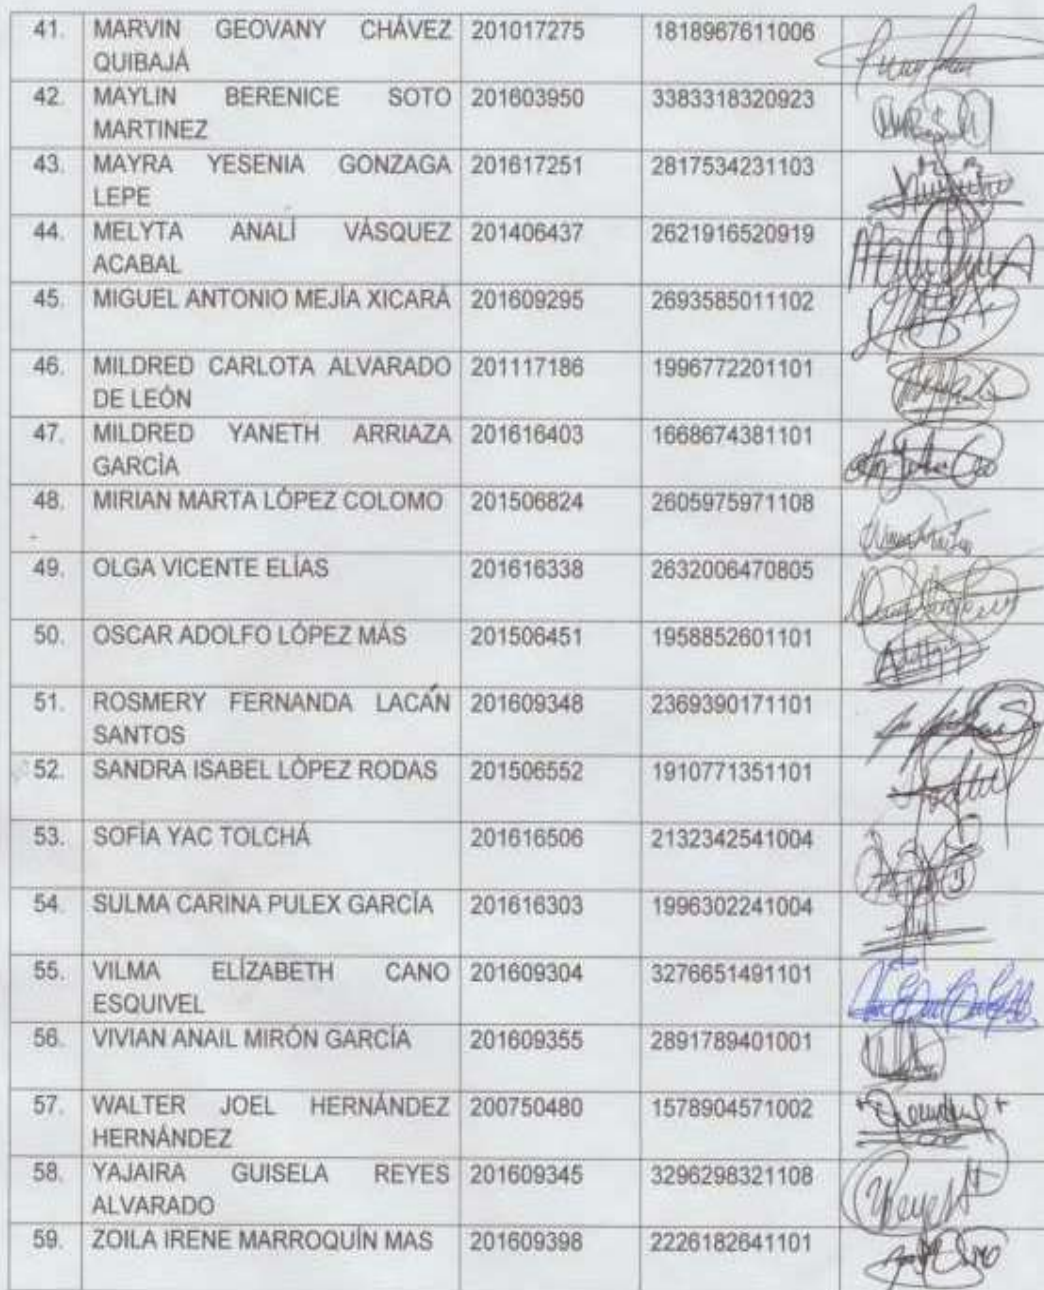 41. MARVIN GEOVANY CHÁVEZ 201017275 1818967611006
QUIBAJÁ
42. MAYLIN BERENICE SOTO 201603950 3383318320923
MARTINEZ
43. MAYRA YESENIA GONZAGA 201617251 2817534231103
LEPE
44. MELYTA ANALÍ VÁSQUEZ 201406437 2621916520919
ACABAL
45. MIGUEL ANTONIO MEJÍA XICARÁ 201609295 2693585011102
46. MILDRED CARLOTA ALVARADO 201117186 1996772201101
DE LEÓN
47. MILDRED YANETH ARRIAZA 201616403 1668674381101
GARCÍA
48. MIRIAN MARTA LÓPEZ COLOMO 201506824 2605975971108
49. OLGA VICENTE ELÍAS 201616338 2632006470805
50. OSCAR ADOLFO LÓPEZ MÁS 201506451 1958852601101
51. ROSMERY FERNANDA LACÁN 201609348 2369390171101
SANTOS
52. SANDRA ISABEL LÓPEZ RODAS 201506552 1910771351101
53. SOFÍA YAC TOLCHÁ 201616506 2132342541004
54. SULMA CARINA PULEX GARCÍA 201616303 1996302241004
55. VILMA ELÍZABETH CANO 201609304 3276651491101
ESQUIVEL
56. VIVIAN ANAIL MIRÓN GARCÍA 201609355 2891789401001
57. WALTER JOEL HERNÁNDEZ 200750480 1578904571002
HERNÁNDEZ
58. YAJAIRA GUISELA REYES 201609345 3296298321108
ALVARADO
59. ZOILA IRENE MARROQUÍN MAS 201609398 2226182641101